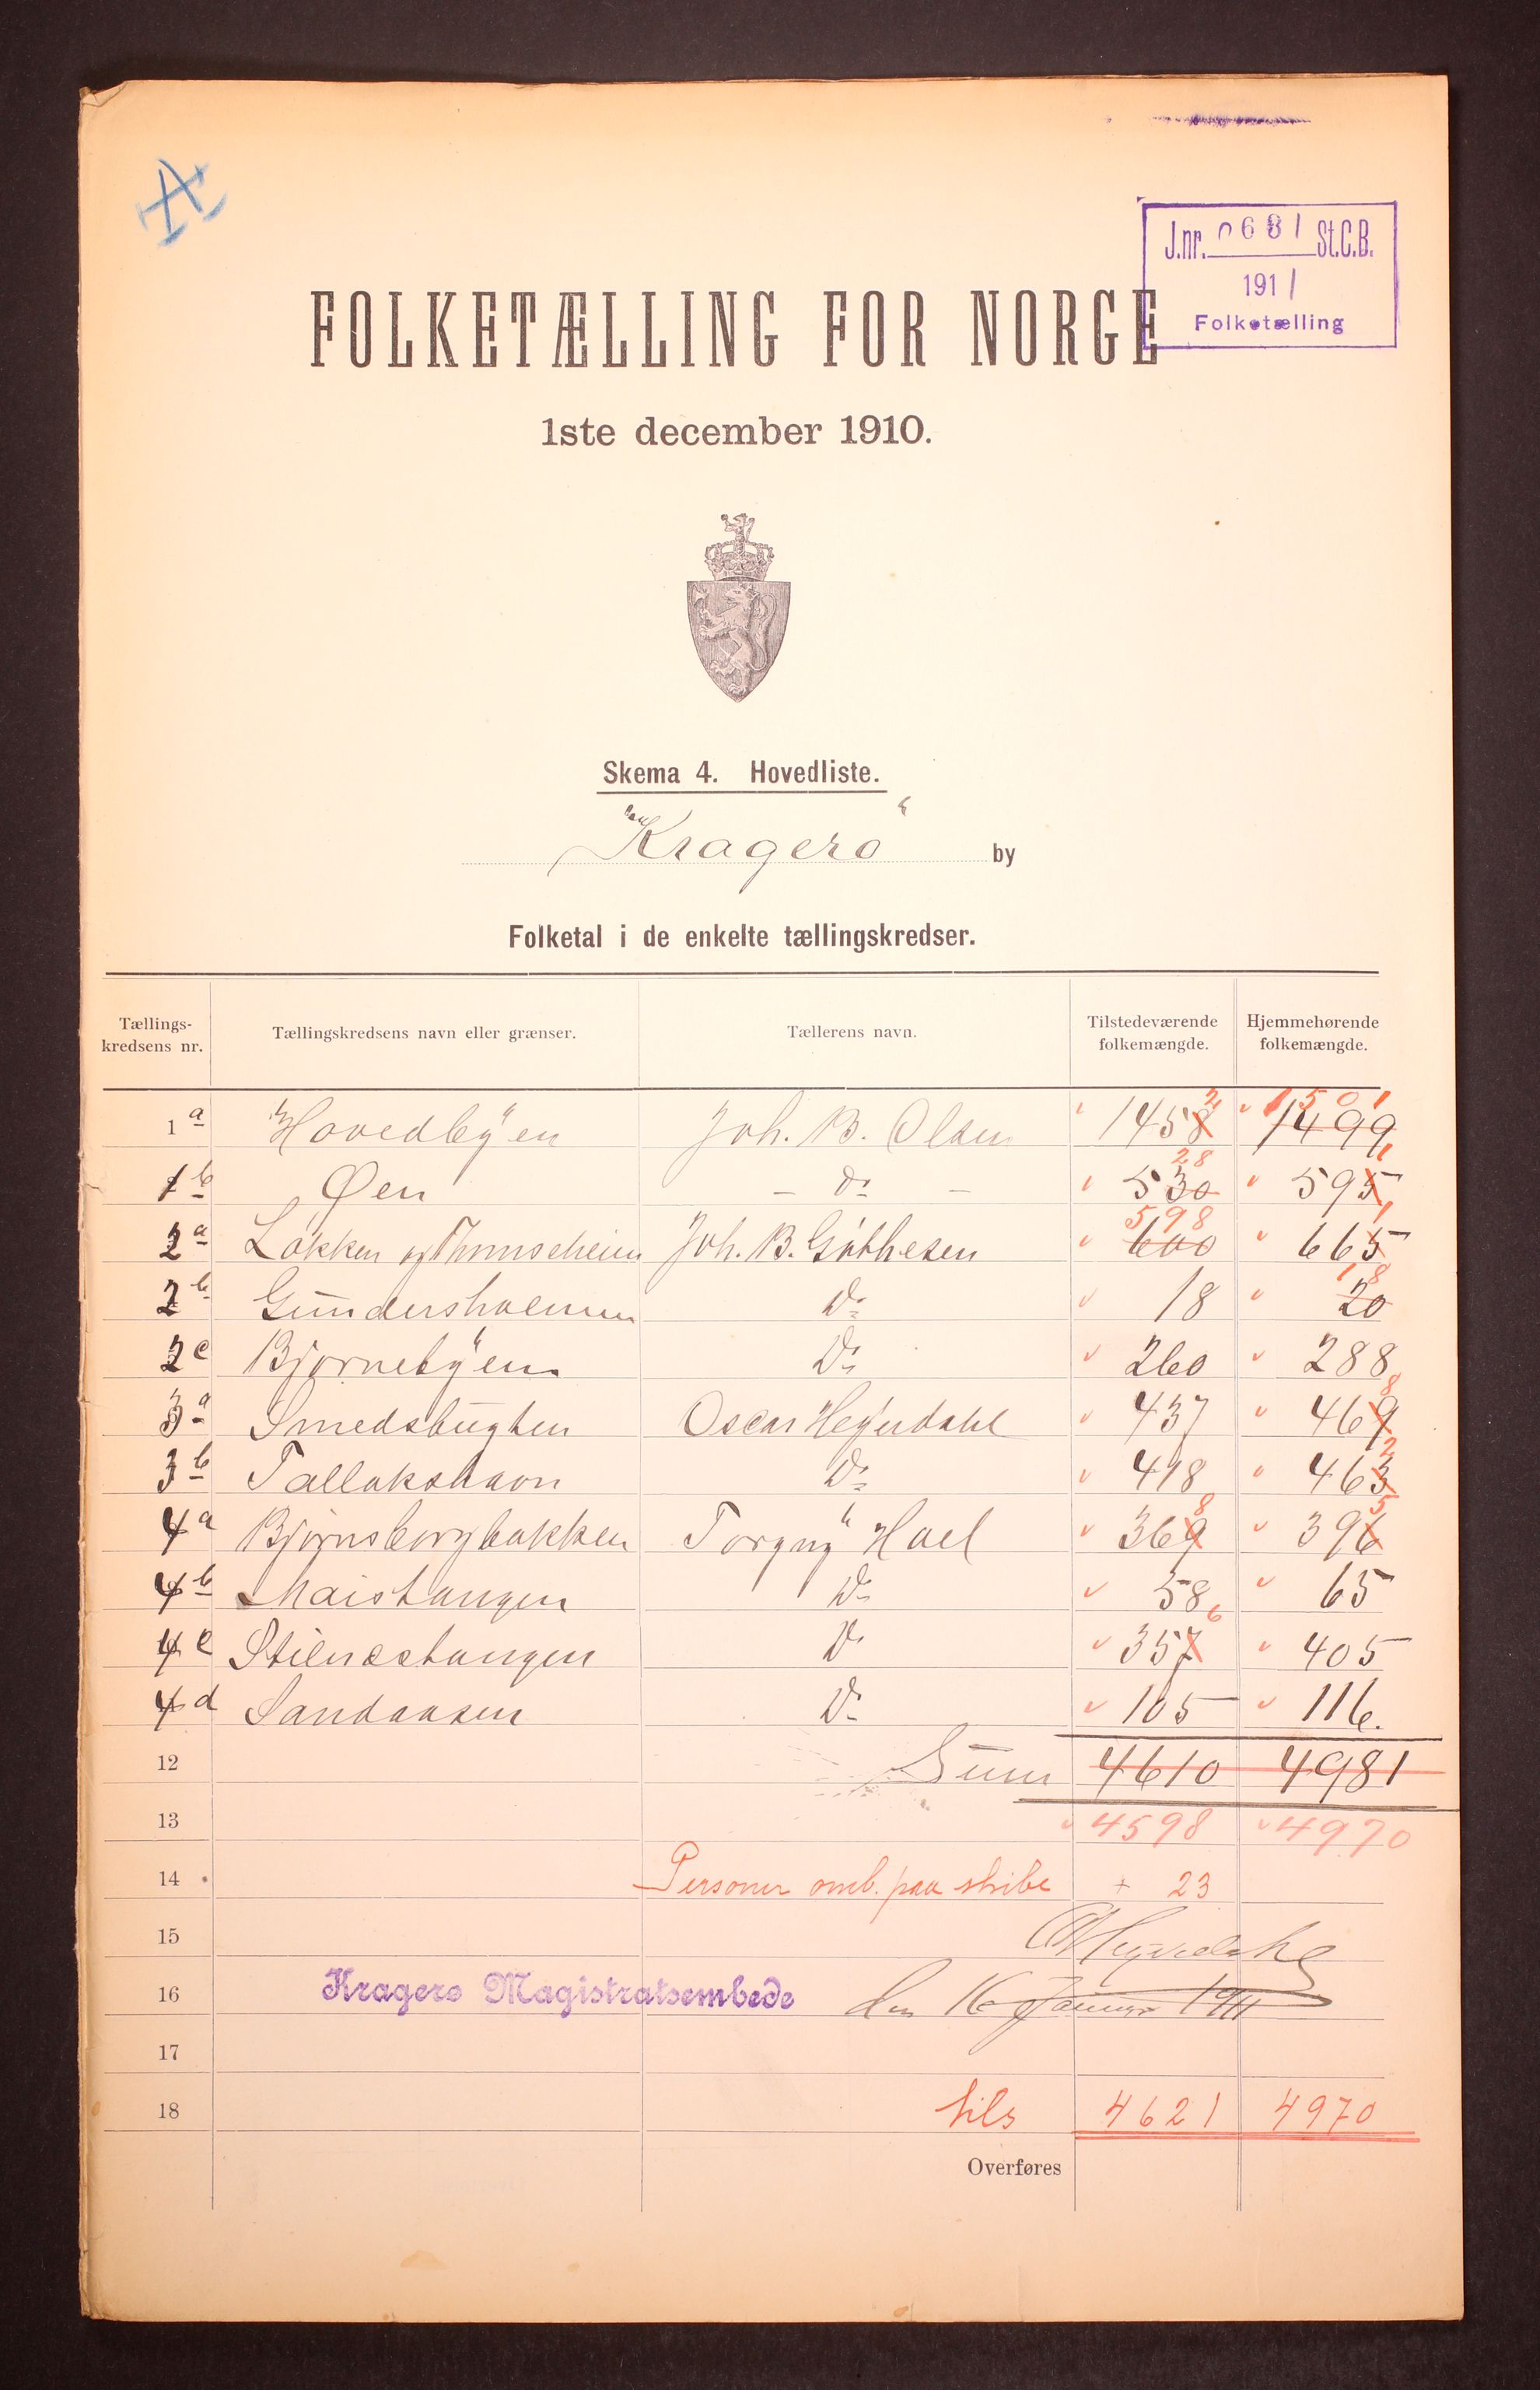 J.nr. 0681 St.C.B.
1911
Folketælling
FOLKETÆLLING FOR NORGE
1ste december 1910.
Skema 4. Hovedliste.
"Kragerø" by
Folketal i de enkelte tællingskredser.
Tællings-kredsens nr. Tællingskredsens navn eller grænser. Tællerens navn. Tilstedeværende folkemængde. Hjemmehørende folkemængde.
1 a Hovedbyen Joh. B. Olsen 1458 2 1499 1501
1 b Øen - Do - 530 28 595 1
2 a Løkken og Joh. B. Gjøthesen 600 598 665 1
2 b Gundersholmen Do 18 20 18
2 c Bjørnebyen Do 260 288
3 a Smedsbugten Oscar Heyerdahl 437 469 8
3 b Tallakshavn Do 418 463 2
4 a Bjørnsborgbakken Torgny Hoel 369 8 396 5
4 b Maistangen Do 58 65
4 c Stilnestangen Do 357 6 405
4 d Sandaasen Do 105 116.
12 Sum 4610 4981
13 4598 4970
14 Personer omb. paa skibe + 23
15
16 Kragerø Magistratsembede den 16 Januar 1911
17
18 tils 4621 4970
Overføres